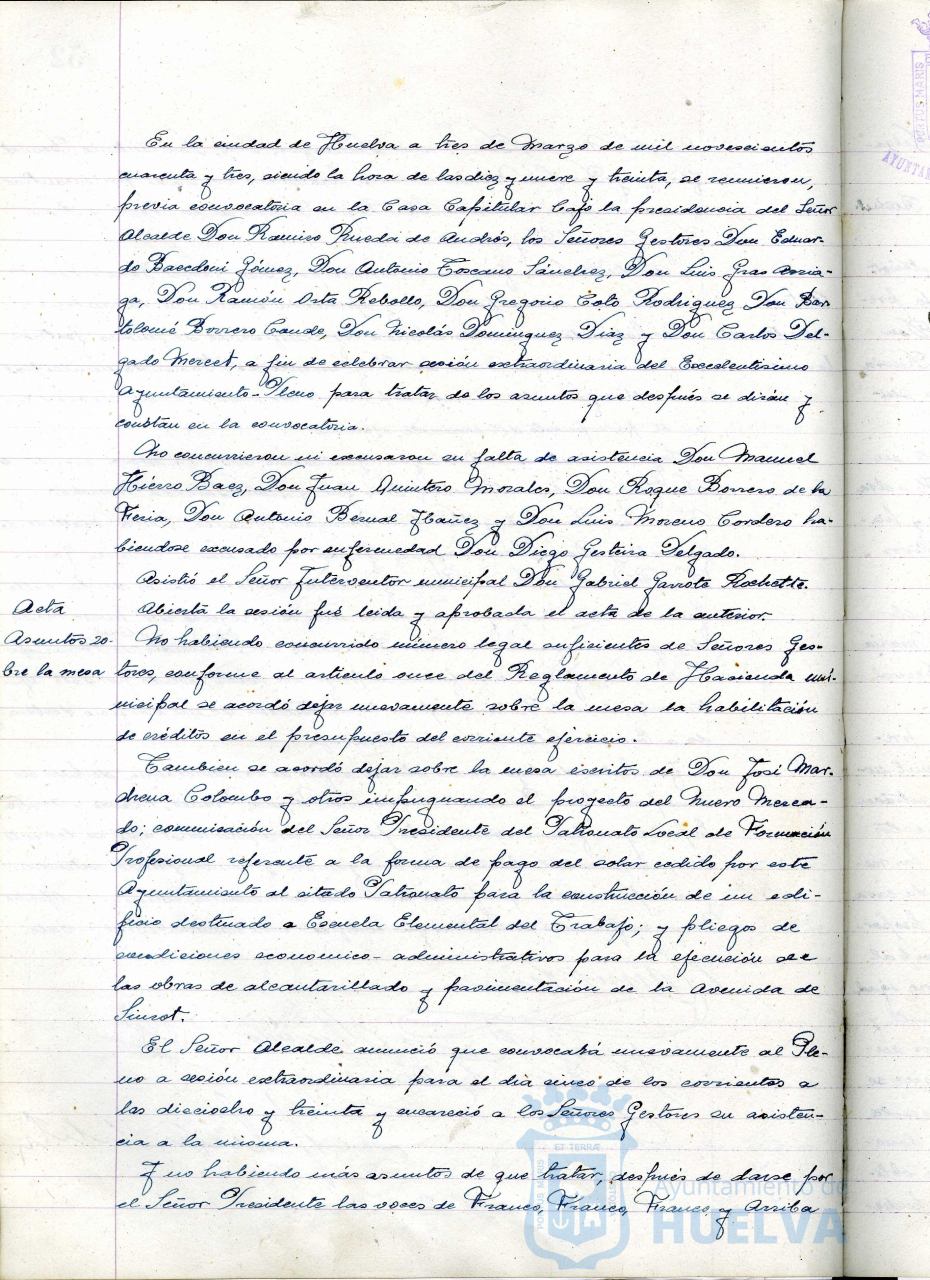 En la ciudad de Huelva a tres de Marzo de mil novescientos
cuarenta y tres, siendo la hora de las diez y nueve y treinta, se reunieron,
previa convocatoria en la Casa Capitular bajo la presidencia del Señor
Alcalde Don Ramiro Rueda de Andrés, los Señores Gestores Don Eduar-
do Baecdoni Gómez, Don Antonio Toscano Sánchez, Don Luis Gras Arria-
ga, Don Ramón Orta Rebollo, Don Gregorio Coto Rodriguez Don Bar
tolomé Borrero Conde, Don Nicolás Dominguez Diaz y Don Carlos Del-
gado Mercet, a fin de celebrar sesión extraordinaria del Excelentisimo
Ayuntamiento-Pleno para tratar de los asuntos que después se dirán y
constan en la convocatoria.
No concurrieron ni excusaron su falta de asistencia Don Manuel
Hierro Baez, Don Juan Quintero Morales, Don Roque Borrero de la
Feria, Don Antonio Bernal Ibañez y Don Luis Moreno Cordero ha-
biendose excusado por enfermedad Don Diego Gesteira Delgado.
Asistió el Señor Interventor municipal Don Gabriel Garrote Rochette.
Acta
Abierta la sesión fué leida y aprobada el acta de la anterior.
Asuntos so-
bre la mesa
No habiendo concurrido número legal suficientes de Señores Ges-
tores, conforme al articulo once del Reglamento de Hacienda mu-
nicipal se acordó dejar nuevamente sobre la mesa la habilitación
de créditos en el presupuesto del corriente ejercicio.
Tambien se acordó dejar sobre la mesa escritos de Don José Mar-
chena Colombo y otros impugnando el proyecto del Nuevo Merca-
do; comunicación del Señor Presidente del Patronato Local de Formación
Profesional referente a la forma de pago del solar cedido por este
Ayuntamiento al citado Patronato para la construcción de un edi-
ficio destinado a Escuela Elemental del Trabajo; y pliegos de
condiciones economico-administrativos para la ejecución de
las obras de alcantarillado y pavimentación de la Avenida de
Siurot.
El Señor Alcalde anunció que convocará nuevamente al Ple-
no a sesión extraordinaria para el dia cinco de los corrientes a
las dieciocho y treinta y encareció a los Señores Gestores su asisten-
cia a la misma.
Y no habiendo más asuntos de que tratar, después de darse por
el Señor Presidente las voces de Franco, Franco, Franco y Arriba
ET TERRÆ
Ayuntamiento de
HUELVA